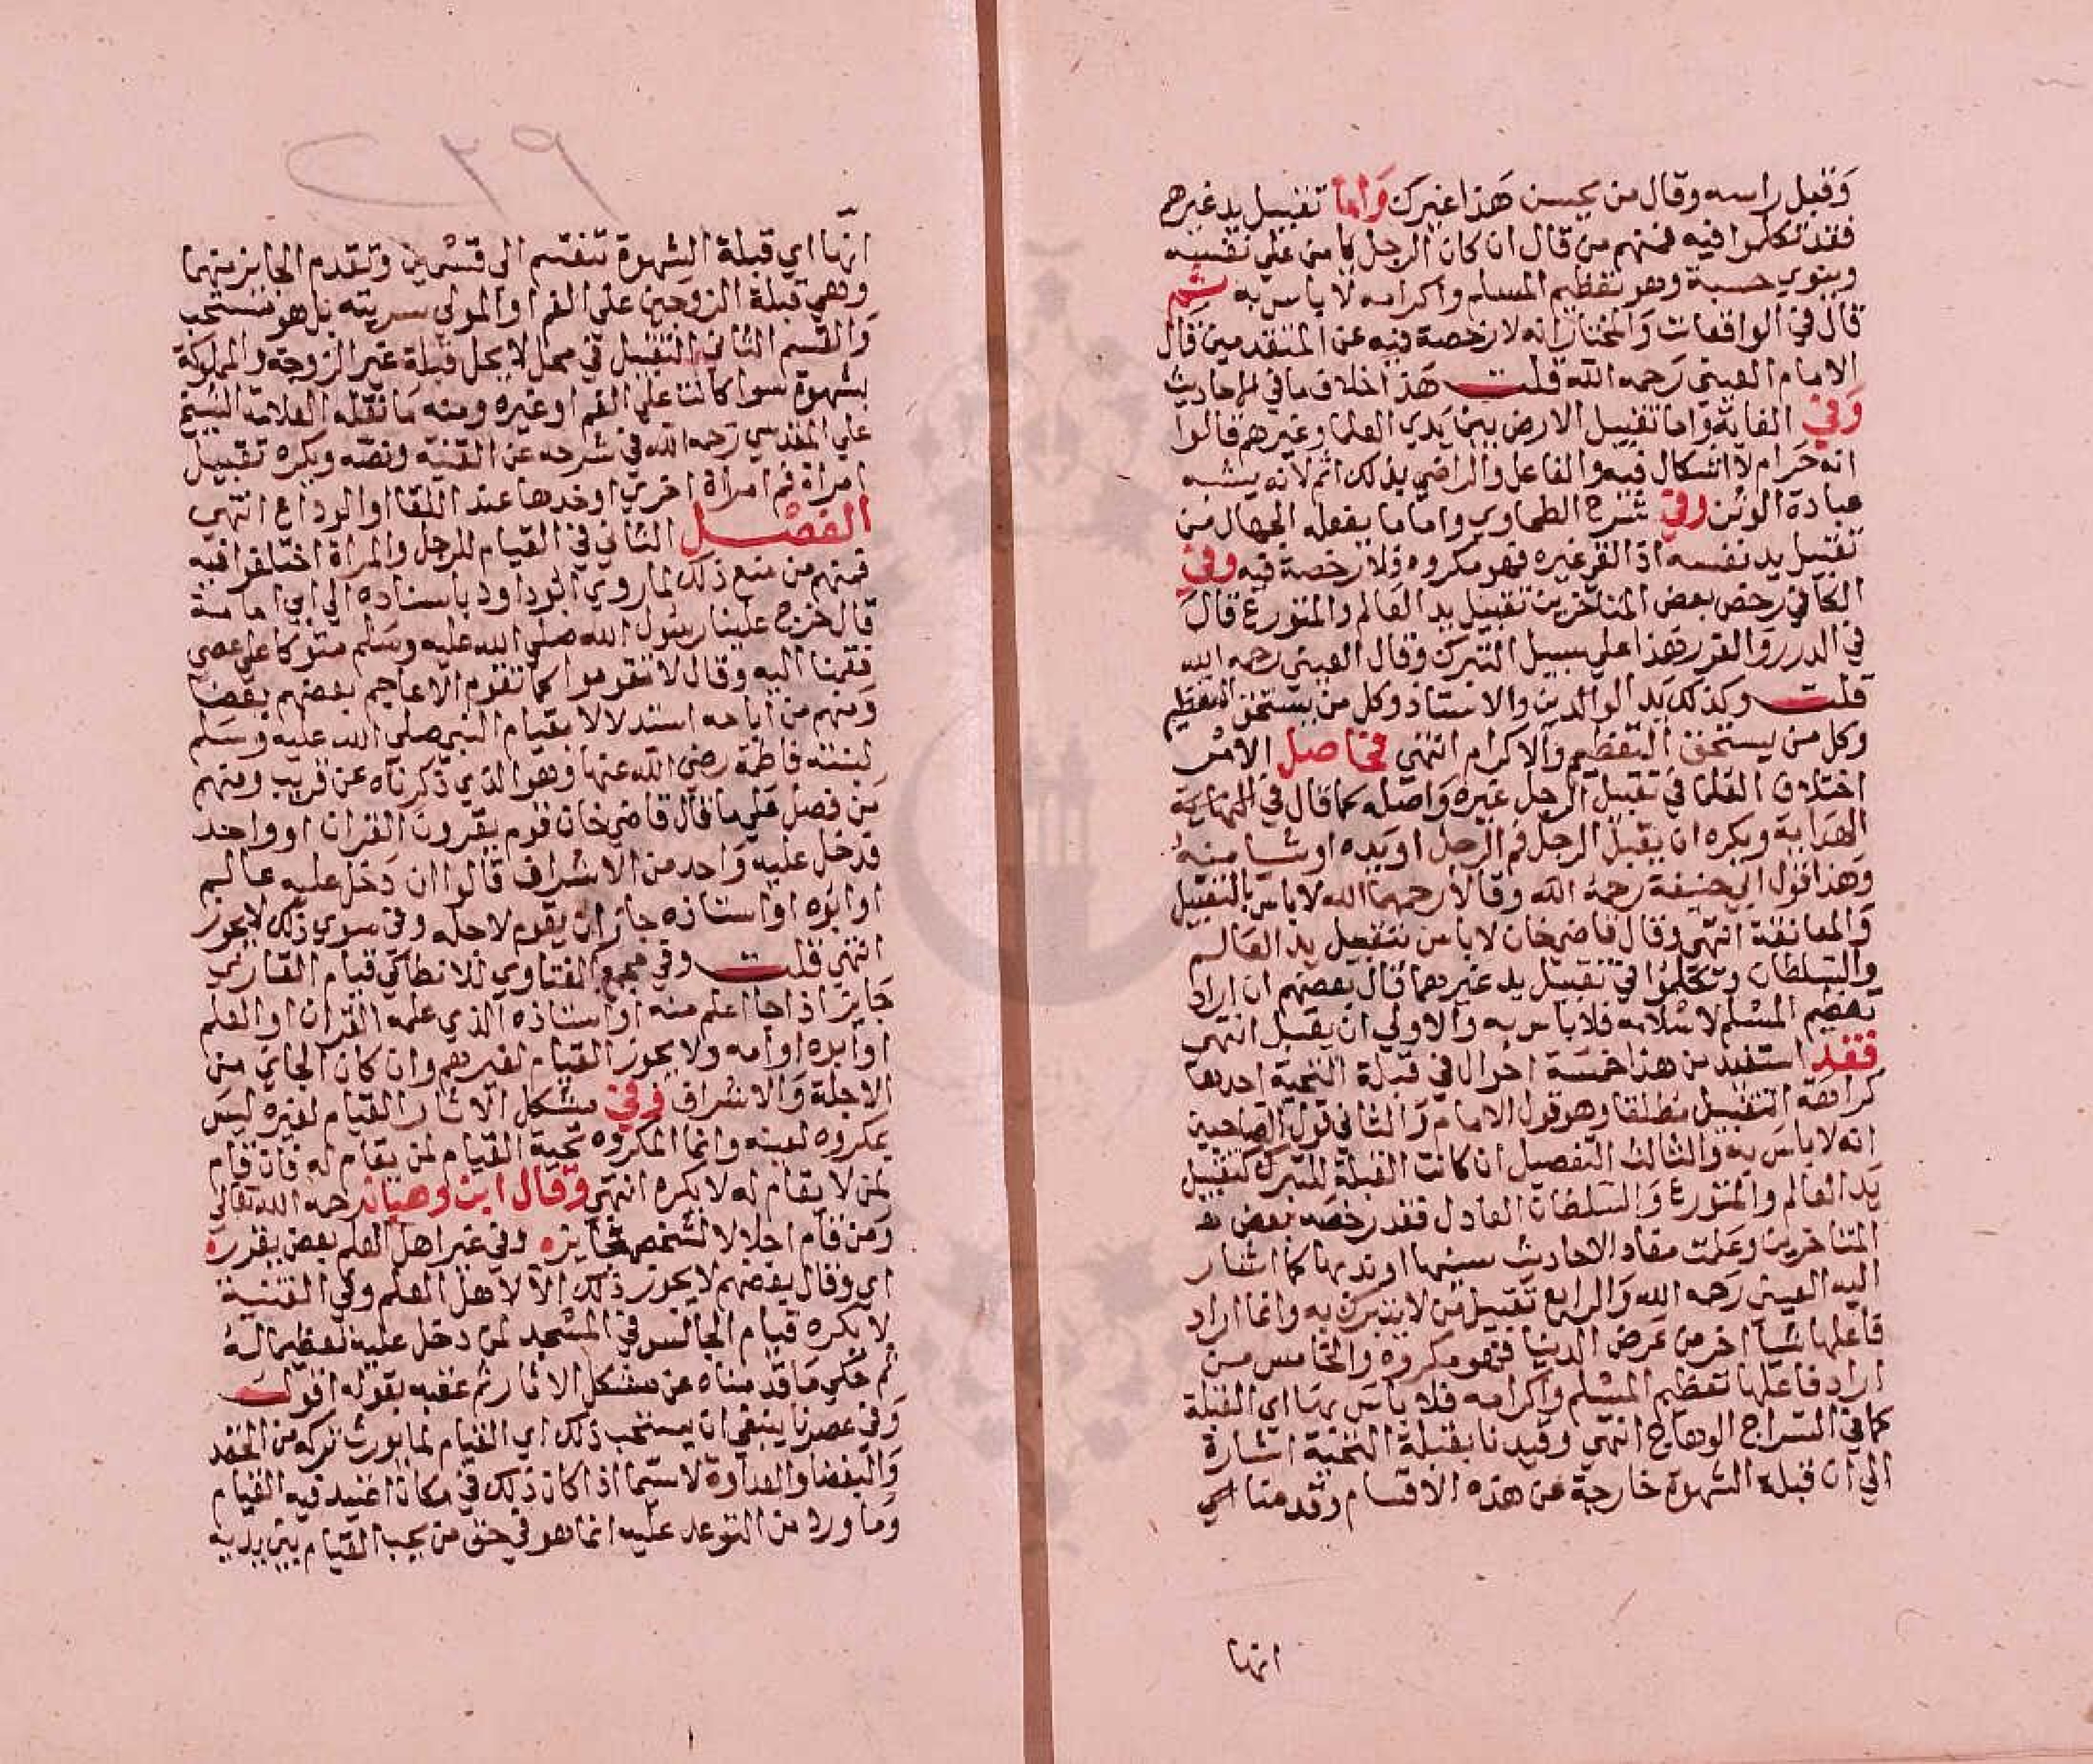 وقبل راسه وقال من يحسن هذا غيرك واما تقبيل يد غيرهم
فقد تكلموا فيه فمنهم من قال ان كان الرجل يامن على نفسه
وينوي حسبة وهو تعظيم المسلم واكرامه لا باس به ثم
قال في الواقعات والمختار انه لا رخصة فيه عن المتقدمين قال
الامام العيني رحمه الله قلت هذا خلاف ما في الاحاديث
وفي الغاية واما تقبيل الارض بين يدي العلما وغيرهم قالوا
انه حرام لا اشكال فيه والفاعل والراضي بذلك اثم لانه يشبه
عبادة الوثن وفي شرح الطحاوي واما ما يفعله الجهال من
تقبيل يد نفسه اذا لقي غيره فهو مكروه ولا رخصة فيه وفي
الكافي رخص بعض المتاخرين تقبيل يد العالم والمتورع قال
في الدرر والغرر هذا على سبيل التبرك وقال العيني رحمه الله
قلت وكذلك يد الوالدين والاستاد وكل من يستحق التعظيم
وكل من يستحق التعظيم والاكرام انتهي فحاصل الامر
اختلاف العلما في تقبيل الرجل غيره واصله كما قال في النهاية
الهداية ويكره ان يقبل الرجل فم الرجل او يده او شيا منه
وهذا قول ابي حنيفة رحمه الله وقالا رحمهما الله لا باس بالتقبيل
والمعانقة انتهي وقال قاضي خان لا باس بتقبيل يد العالم
والسلطان وتكلموا في تقبيل يد غيرهما قال بعضهم ان اراد
تعظيم المسلم لاسلامه فلا باس به والاولي ان يقبل انتهي
فقد استفيد من هذا خمسة احوال في قبلة التحية احدها
كراهة التقبيل مطلقا وهو قول الامام والثاني قول الصاحبين
انه لا باس به والثالث التفصيل ان كانت القبلة للتبرك كتقبيل
يد العالم والمتورع والسلطان العادل فقد رخصه بعض
المتاخرين وعلمت مفاد الاحاديث سنيتها او ندبها كما اشار
اليه العيني رحمه الله والرابع تقبيل من لا يتبرك به وانما اراد
فاعلها شيا اخر من عرض الدنيا فهو مكروه والخامس من
اراد فاعلها تعظيم المسلم واكرامه فلا باس بها اي القبلة
كما في السراج الوهاج انتهي وقيدنا بقبلة التحية اشارة
الي ان قبلة الشهوة خارجة عن هذه الاقسام وقدمنا
انها
٢٣٩
انها اي قبلة الشهوة تنقسم الي قسمين وتقدم الجائز منهما
وهي قبلة الزوجين علي الفم او المولي سريته بل هو مستحب
والقسم الثاني التقبيل في محل لا يحل قبلة غير الزوجة والمملوكة
بشهوة سوا كانت علي الفم او غيره ومنه ما نقله العلامة الشيخ
علي المقدسي رحمه الله في شرحه عن القنية ونصه ويكره تقبيل
امراة فم امراة اخري او خدها عند اللقا او الوداع انتهي
الفصل الثاني في القيام للرجل والمراة اختلفوا فيه
فمنهم من منع ذلك لما روي ابو داود باسناده الي ابي امامة
قال خرج علينا رسول الله صلي الله عليه وسلم متوكا علي عصي
فقمنا اليه وقال لا تقوموا كما تقوم الاعاجم بعضهم بعضا
ومنهم من اباحه استدلالا بقيام النبي صلي الله عليه وسلم
لبنته فاطمة رضي الله عنها وهو الذي ذكرناه عن قريب ومنهم
من فصل علي ما قال قاضي خان قوم يقرون القران او واحد
فدخل عليه واحد من الاشراف قالوا ان دخل عليه عالم
او ابوه او استاذه جاز ان يقوم لاجله وفي سوي ذلك لا يجوز
انتهي قلت وفي مجمع الفتاوي للانطاكي قيام القاري
جايز اذا جا اعلم منه او استاذه الذي علمه القران او العلم
او ابوه او امه ولا يجوز القيام لغيرهم وان كان الجاي من
الاجلة والاشراف وفي مشكل الاثار القيام لغيره ليس
بمكروه لعينه وانما المكروه محبة القيام لمن يقام له فان قام
لمن لا يقام له لا يكره انتهي وقال ابن وهبان رحمه الله تعالي
ومن قام اجلالا لشخص فجايز ه وفي غير اهل العلم بعض يقرر ه
اي وقال بعضهم لا يجوز ذلك الا لاهل العلم وفي القنية
لا يكره قيام الجالس في المسجد لمن دخل عليه تعظيما له
ثم حكي ما قدمناه عن مشكل الاثار ثم عقبه بقوله اقول
وفي عصرنا ينبغي ان يستحب ذلك اي القيام لما يورث تركه من الحقد
والبغضا والعداوة لا سيما اذا كان ذلك في مكان اعتيد فيه القيام
وما ورد من التوعد عليه انما هو في حق من يحب القيام بين يديه